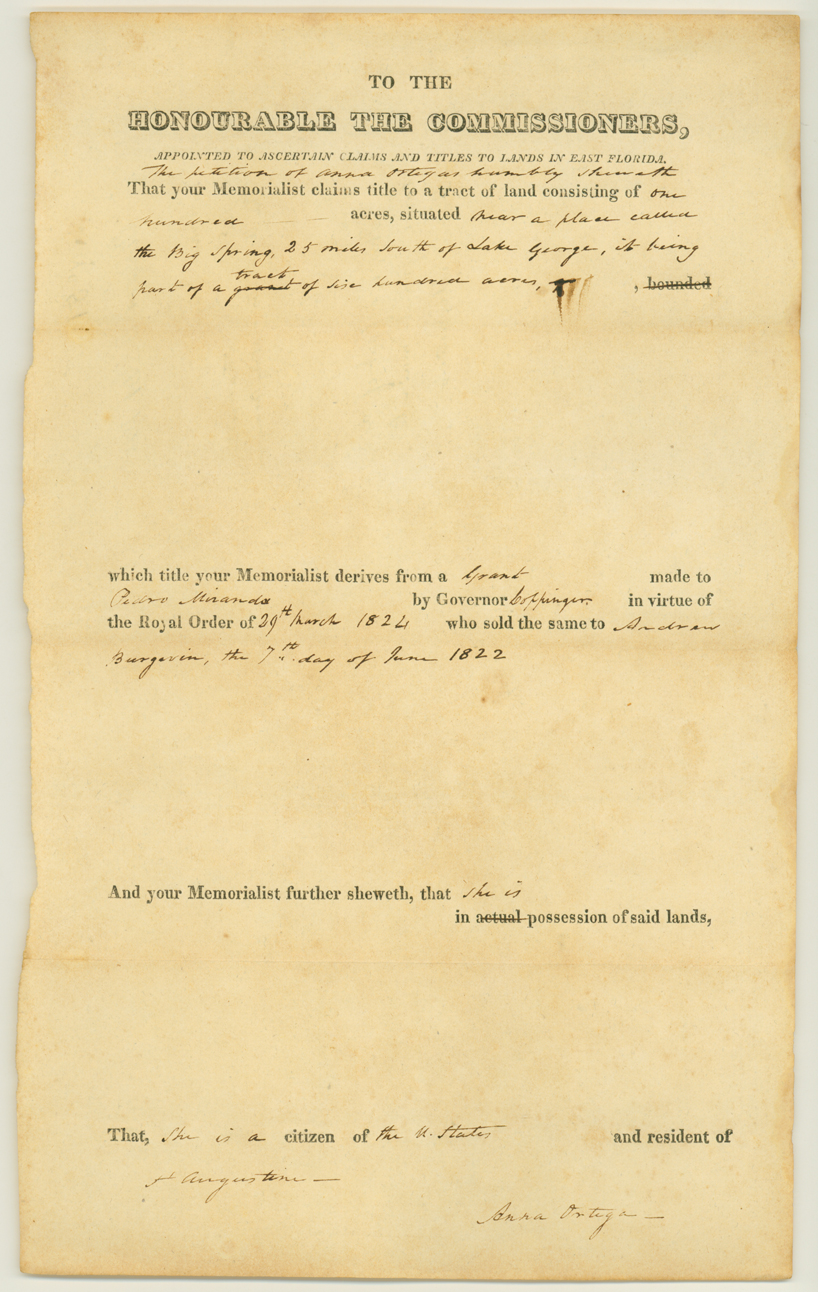 TO THE
HONOURABLE THE COMMISSIONERS,
APPOINTED TO ASCERTAIN CLAIMS AND TITLES TO LANDS IN EAST FLORIDA.
The petition of Anna Ortegas humbly sheweth
That your Memorialist claims title to a tract of land consisting of one
hundred acres, situated near a place called
the Big Spring, 25 miles South of Lake George, it being
tract
part of a grant of six hundred acres, , bounded
which title your Memorialist derives from a Grant made to
Pedro Miranda by Governor Coppinger in virtue of
the Royal Order of 29th March 1824 who sold the same to Andrew
Burgevin, the 7th day of June 1822
And your Memorialist further sheweth, that she is
in actual possession of said lands,
That, She is a citizen of the U. States and resident of
St Augustine —
Anna Ortega —